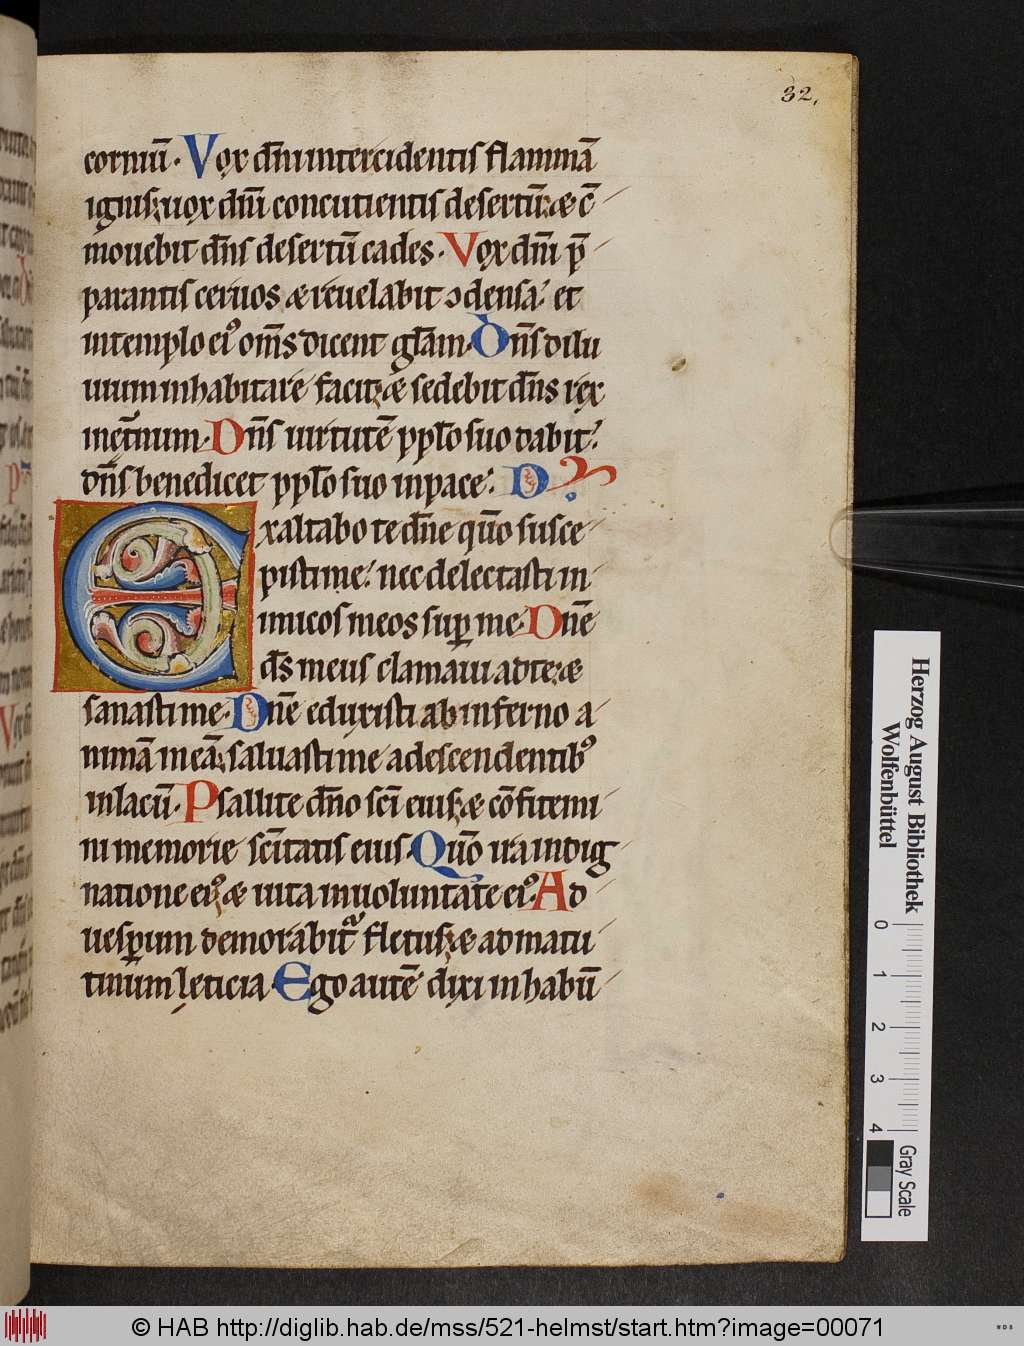 32,
corniu̅. Vox dn̅i intercidentis flamma̅
ignis; uox dn̅i concutientis desertu̅; & c̅
mouebit dn̅s desertu̅ cades. Vox dn̅i p̅
parantis ceruos & reuelabit ↄdensa; et
in templo ei᾿ om̅s dicent gl̅am. Dn̅s dilu
uium inhabitare facit; & sedebit dn̅s rex
inet̅num. Dn̅s uirtute̅ ppl̅o suo dabit;
dn̅s benedicet ppl̅o suo in pace. D
Exaltabo te dn̅e quo̅ susce
pisti me; nec delectasti in
imicos meos sup̱ me. Dn̅e
ds̅ meus clamaui ad te; &
sanasti me. Dn̅e eduxisti ab inferno a
nima̅ mea̅; saluasti me a descendentib᾿
in lacu̅. Psallite dn̅o sc̅i eius; & co̅fitemi
ni memorie sc̅itatis eius. Quo̅ ira in dig
natione ei᾿; & uita in uoluntate ei᾿. Ad
uesp̱um demorabit᷑ fletus; & ad matu
tinum lęticia. Ego aute̅ dixi in habu̅
Herzog August Bibliothek
Wolfenbüttel
0 1 2 3 4
Gray Scale
© HAB http://diglib.hab.de/mss/521-helmst/start.htm?image=00071